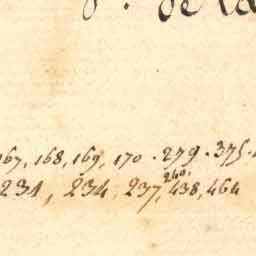 167, 168, 169, 170 · 279 · 375 ·
231, 234, 237, 260, 438, 464